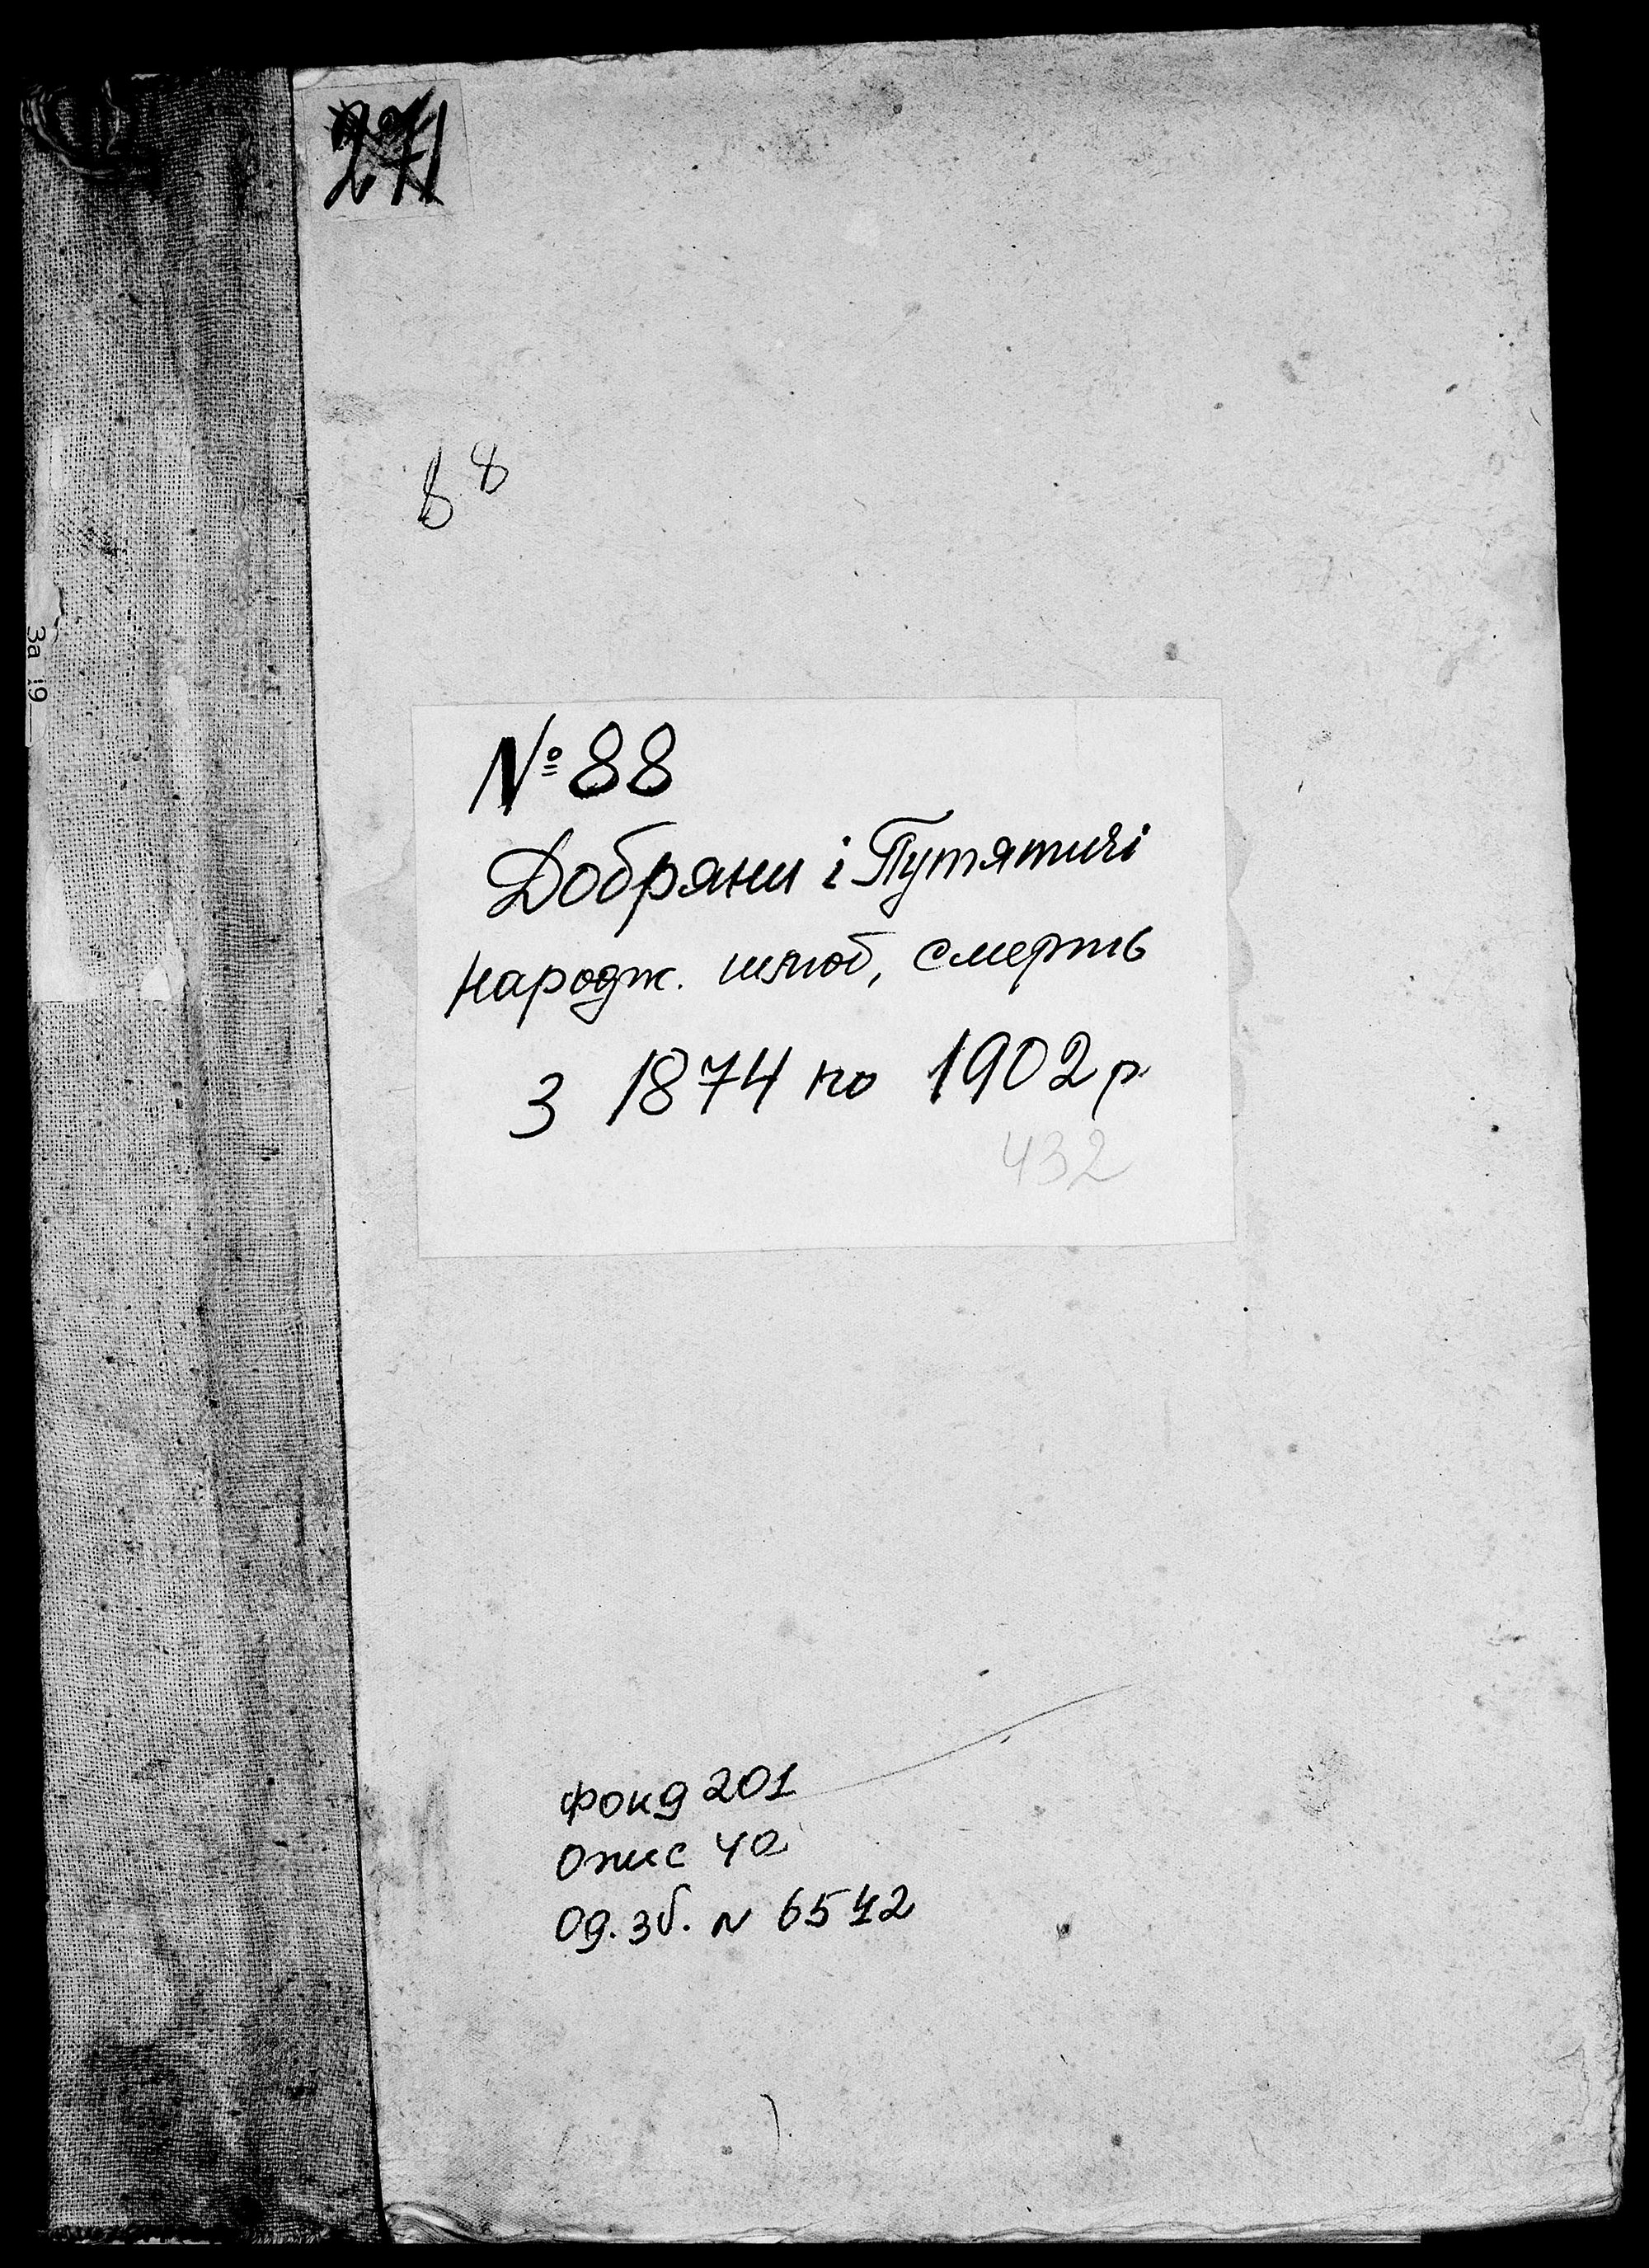 271
88
За 19
№ 88
Добряни і Путятичі
народж. шлюб, смерть
з 1874 по 1902 р
432
фонд 201
опис 4а
од. зб. N 6542